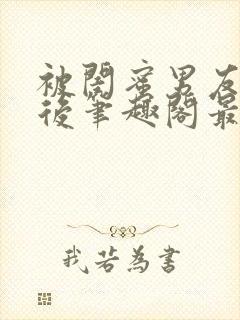 被閨蜜男友
後筆趣閣最
我若為書